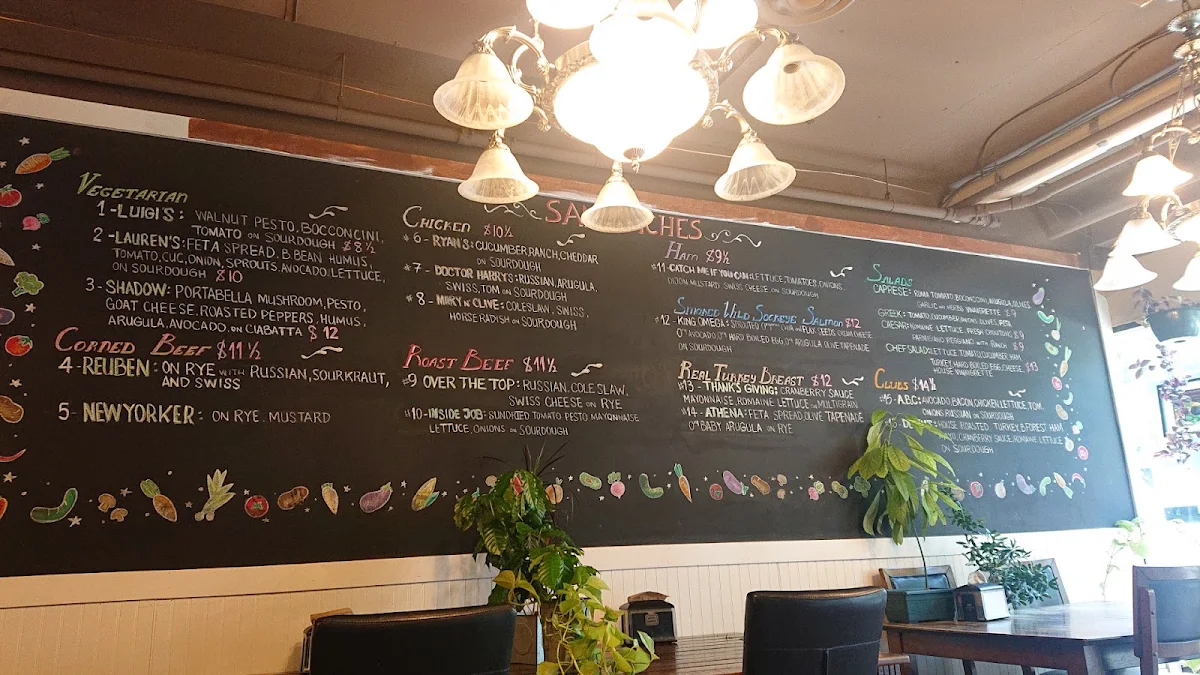 SA CHES
VEGETARIAN
1-LUIGI'S: WALNUT PESTO, BOCCONCINI,
TOMATO ON SOURDOUGH $8½
2-LAUREN'S: FETA SPREAD, B.BEAN HUMUS,
TOMATO, CUC, ONION, SPROUTS, AVOCADO, LETTUCE,
ON SOURDOUGH $10
3-SHADOW: PORTABELLA MUSHROOM, PESTO,
GOAT CHEESE, ROASTED PEPPERS, HUMUS,
ARUGULA, AVOCADO. ON CIABATTA $12
CORNED BEEF $11½
4-REUBEN: ON RYE WITH RUSSIAN, SOURKRAUT,
AND SWISS
5-NEWYORKER: ON RYE. MUSTARD
CHICKEN $10½
#6-RYAN'S: CUCUMBER, RANCH, CHEDDAR
ON SOURDOUGH
#7-DOCTOR HARRY'S: RUSSIAN, ARUGULA,
SWISS, TOM ON SOURDOUGH
#8-MARY N' CLAVE: COLESLAW, SWISS,
HORSE RADISH ON SOURDOUGH
ROAST BEEF $11½
#9 OVER THE TOP: RUSSIAN. COLE SLAW,
SWISS CHEESE ON RYE
#10-INSIDE JOB: SUNDRIED TOMATO PESTO MAYONNAISE
LETTUCE, ONIONS ON SOURDOUGH
HAM $9½
#11-CATCH ME IF YOU CAN: LETTUCE, TOMATOES, ONIONS,
DIJON MUSTARD, SWISS CHEESE ON SOURDOUGH
SMOKED WILD SOCKEYE SALMON $12
#12-KING OMEGA: SPROUTED CHIA AND FLAX SEEDS CREAM CHEESE
AVOCADO HARD BOILED EGG ARUGULA OLIVE TAPENADE
ON SOURDOUGH
REAL TURKEY BREAST $12
#13-THANKS GIVING: CRANBERRY SAUCE
MAYONNAISE, ROMAINE LETTUCE ON MULTIGRAIN
#14-ATHENA: FETA SPREAD, OLIVE TAPENADE
BABY ARUGULA ON RYE
SALADS
CAPRESE: ROMA TOMATO, BOCCONCINI, ARUGULA, OLIVES,
GARLIC VINAIGRETTE $9
GREEK: TOMATO, CUCUMBER, ONIONS, OLIVES, FETA
CAESAR: ROMAINE LETTUCE, FRESH CROUTONS, $9
PARMIGIANO REGGIANO WITH RANCH $9
CHEF SALAD: LETTUCE, TOMATO, CUCUMBER, HAM,
TURKEY, HARD BOILED EGG, CHEESE, $13
HOUSE VINAIGRETTE
CLUBS $14½
#15-A.B.C: AVOCADO, BACON, CHICKEN, LETTUCE, TOM,
ONIONS, RUSSIAN ON SOURDOUGH
HOUSE ROASTED TURKEY, B.FOREST HAM
MAYO, CRANBERRY SAUCE, ROMAINE LETTUCE
ON SOURDOUGH